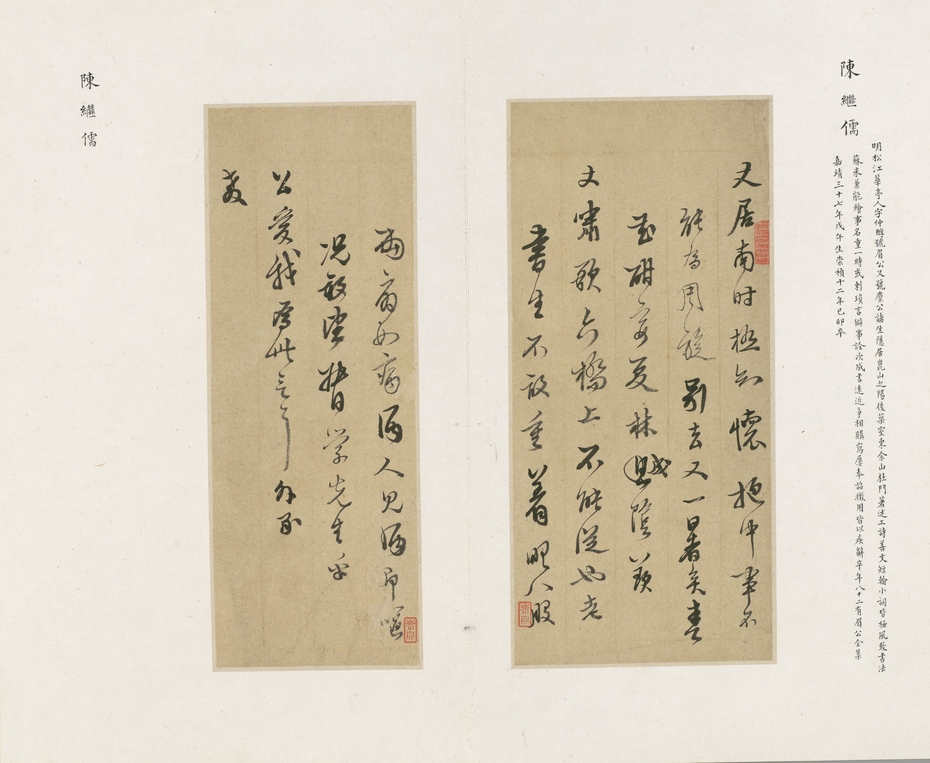 陳繼儒
明松江華亭人字仲醇號眉公又號麋公諸生隱居崑山之陽後築室東佘山杜門著述工詩善文短翰小詞皆極風致書法
蘇米兼能繪事名重一時或刺瑣言僻事詮次成書遠近爭相購寫屢奉詔徵用皆以疾辭卒年八十二有眉公全集
嘉靖三十七年戊午生崇禎十二年己卯卒
丈居南時極知懷抱中事不
能為周旋別去又一暑矣春
花酣安夏林
丈嘯歌六橋上不能從也老
書生不敢重著眼八股
兩
如病酒人見酒即嘔
況敢望替學先生乎
公愛我為此言耳
教
陳繼儒